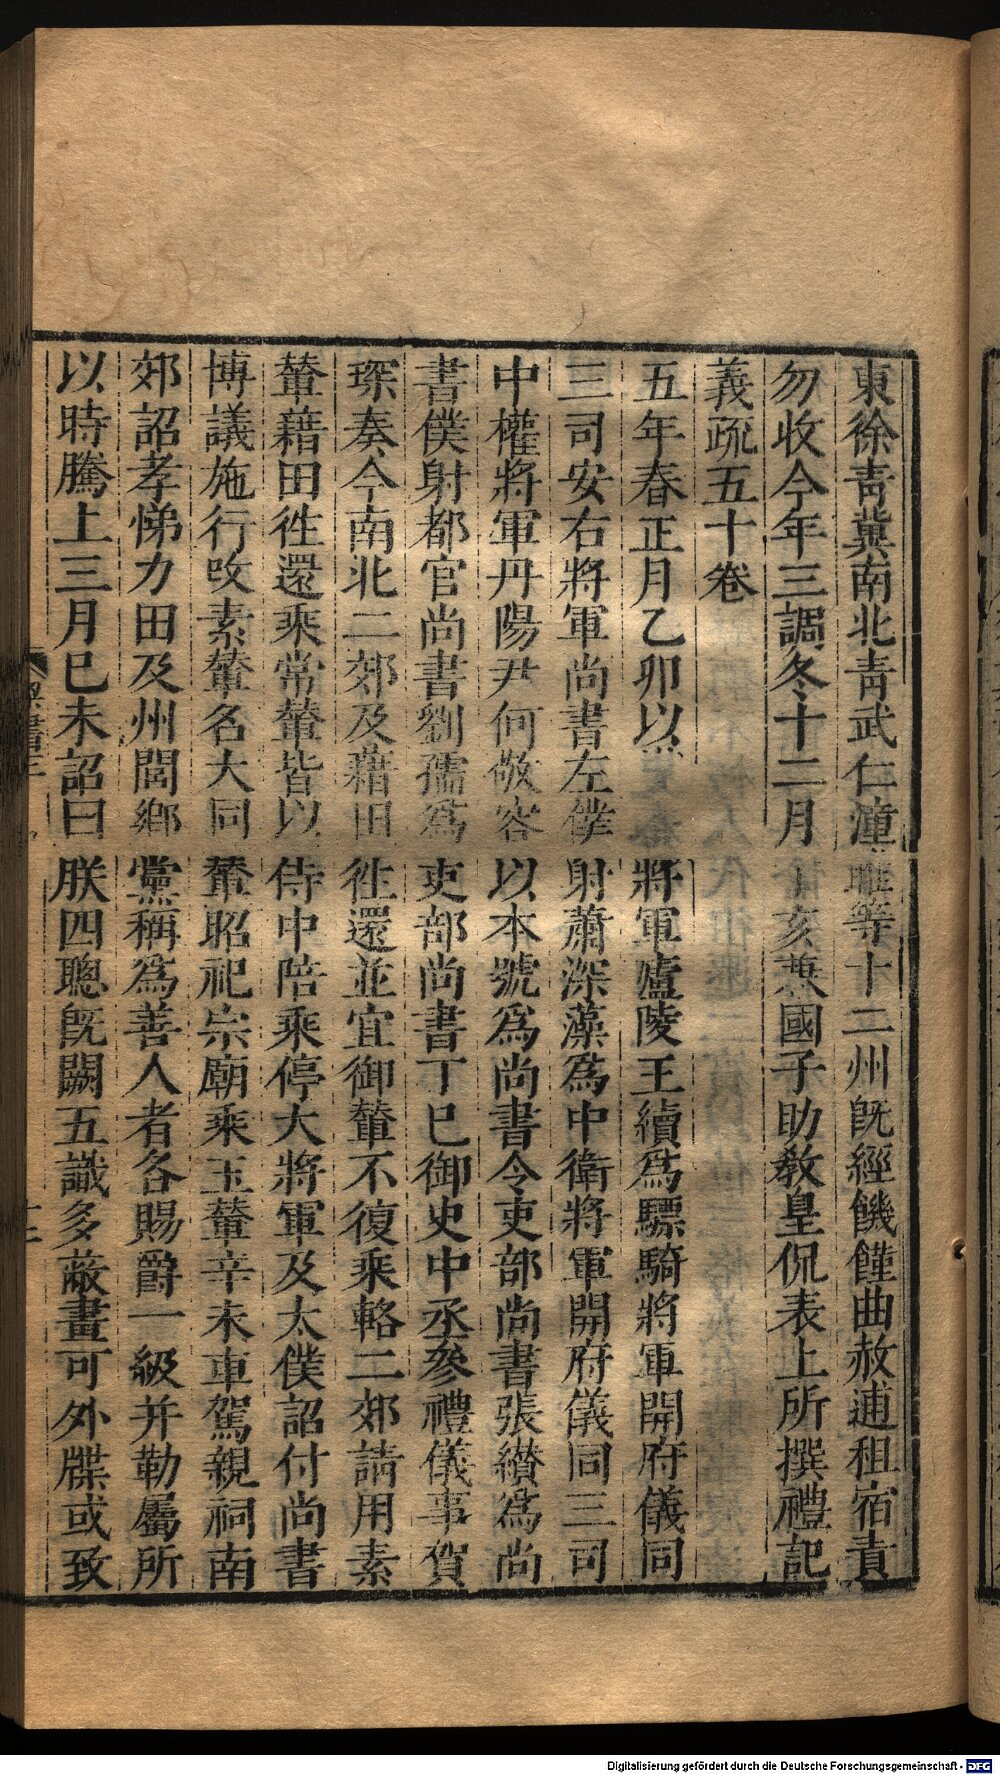 東徐青冀南北青武仁潼睢等十二州旣經饑饉曲赦逋租宿責
勿收今年三調冬十二月亥兼國子助敎皇侃表上所撰禮記
義疏五十卷
五年春正月乙卯以將軍廬陵王續爲驃騎將軍開府儀同
三司安右將軍尚書左僕射蕭深藻爲中衛將軍開府儀同三司
中權將軍丹陽尹何敬容以本號爲尚書令吏部尚書張纉爲尚
書僕射都官尚書劉孺爲吏部尚書丁巳御史中丞參禮儀事賀
琛奏今南北二郊及藉田徃還並宜御輦不復乘輅二郊請用素
輦藉田徃還乘常輦皆以侍中陪乘停大將軍及太僕詔付尚書
博議施行改素輦名大同輦昭祀宗廟乘玉輦辛未車駕親祠南
郊詔孝悌力田及州閭鄉黨稱爲善人者各賜爵一級并勒屬所
以時騰上三月巳未詔曰朕四聰旣闕五識多蔽畫可外牒或致
Digitalisierung gefördert durch die Deutsche Forschungsgemeinschaft - DFG